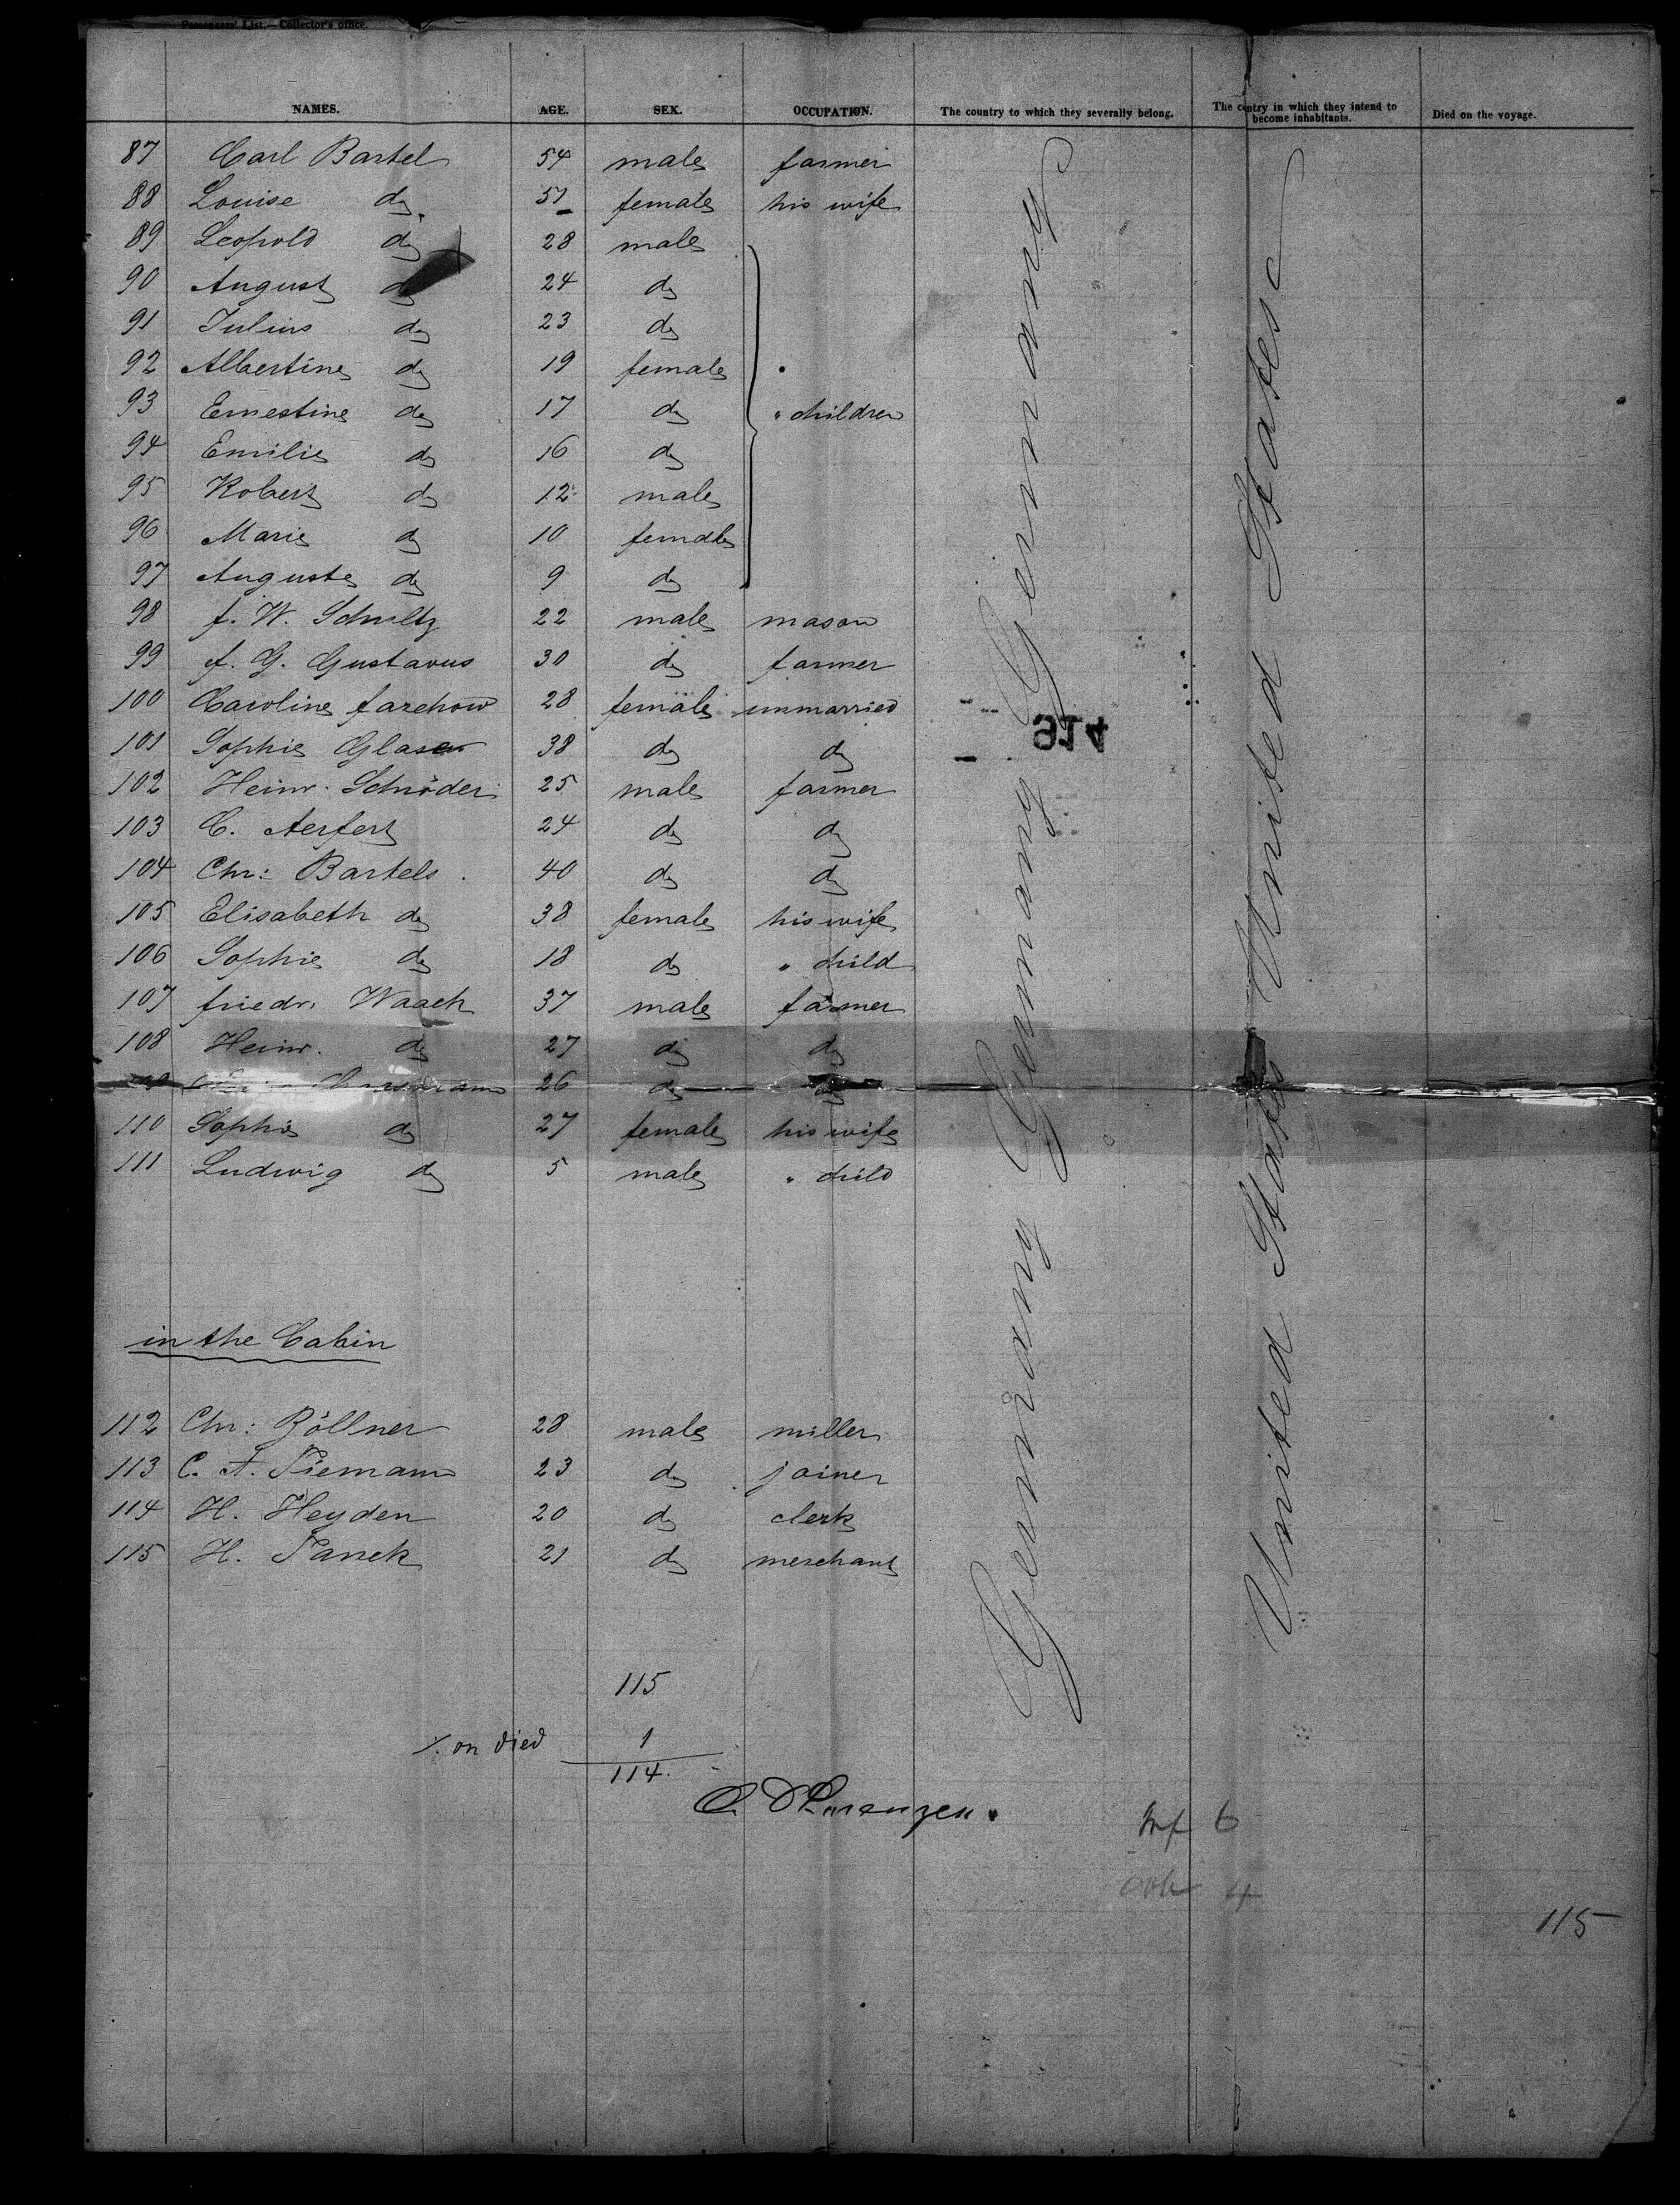 Passengers' List.—Collector's office.
NAMES. AGE. SEX. OCCUPATION. The country to which they severally belong. The contry in which they intend to become inhabitants. Died on the voyage.
87 Carl Bartel 54 male farmer
88 Louise do. 51 female his wife
89 Leopold do 28 male
90 August do 24 do
91 Julius do 23 do
92 Albertine do 19 female
93 Ernestine do 17 do " children
94 Emilie do 16 do
95 Robert do 12 male
96 Marie do 10 female
97 Auguste do 9 do
98 f. W. Schultz 22 male mason
99 f. G. Gustavus 30 do farmer
100 Caroline farchow 28 female unmarried
101 Sophie Glaser 38 do do
102 Heinr. Schröder 25 male farmer
103 C. 24 do do
104 Chr: Bartels 40 do do
105 Elisabeth do 38 female his wife
106 Sophie do 18 do " child
107 friedr. Waack 37 male farmer
108 Heinr. do 27 do do
26 do do
110 Sophie do 27 female his wife
111 Ludwig do 5 male " child
Germany Germany Germany
United States United States
914
in the Cabin
112 Chr: Röllner 28 male miller
113 C. F. Tiemann 23 do joiner
114 H. Heyden 20 do clerk
115 H. 21 do merchant
115
on died 1
114.
Lorenzen.
Inf 6
4
115